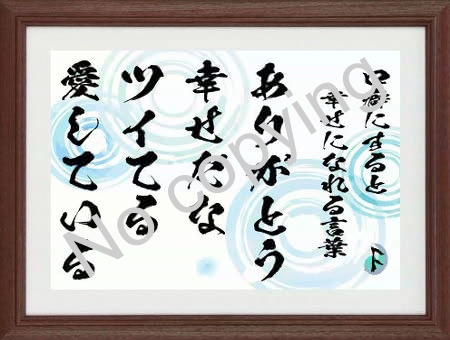 口癖にすると
幸せになれる言葉
ありがとう
幸せだな
ツイてる
愛している
No copying